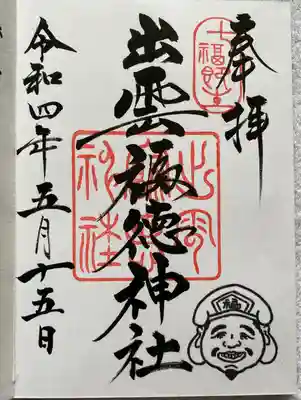 奉拝
七福即生
出雲福徳神社
令和四年五月十五日
福